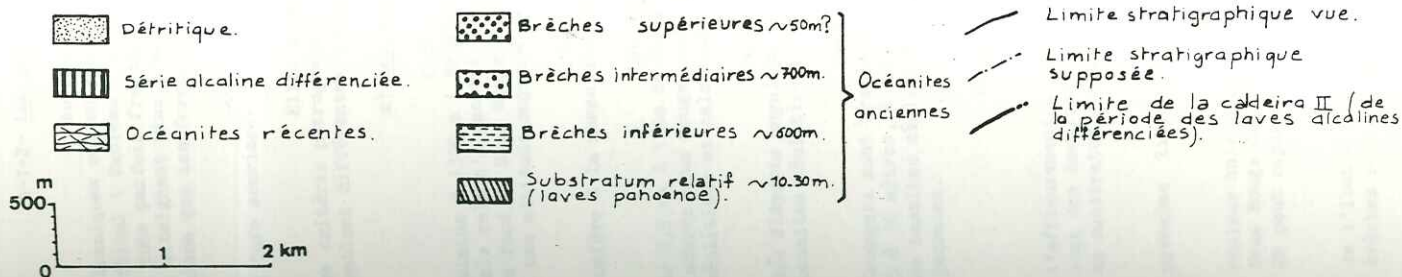 Détritique.
Série alcaline différenciée.
Océanites récentes.
m
500
0
1
2 km
Brèches supérieures ~50m?
Brèches intermédiaires ~700m.
Brèches inférieures ~600m.
Substratum relatif ~10.30m.
(laves pahoehoe).
Océanites
anciennes
Limite stratigraphique vue.
Limite stratigraphique
supposée.
Limite de la caldeira II (de
la période des laves alcalines
différenciées).